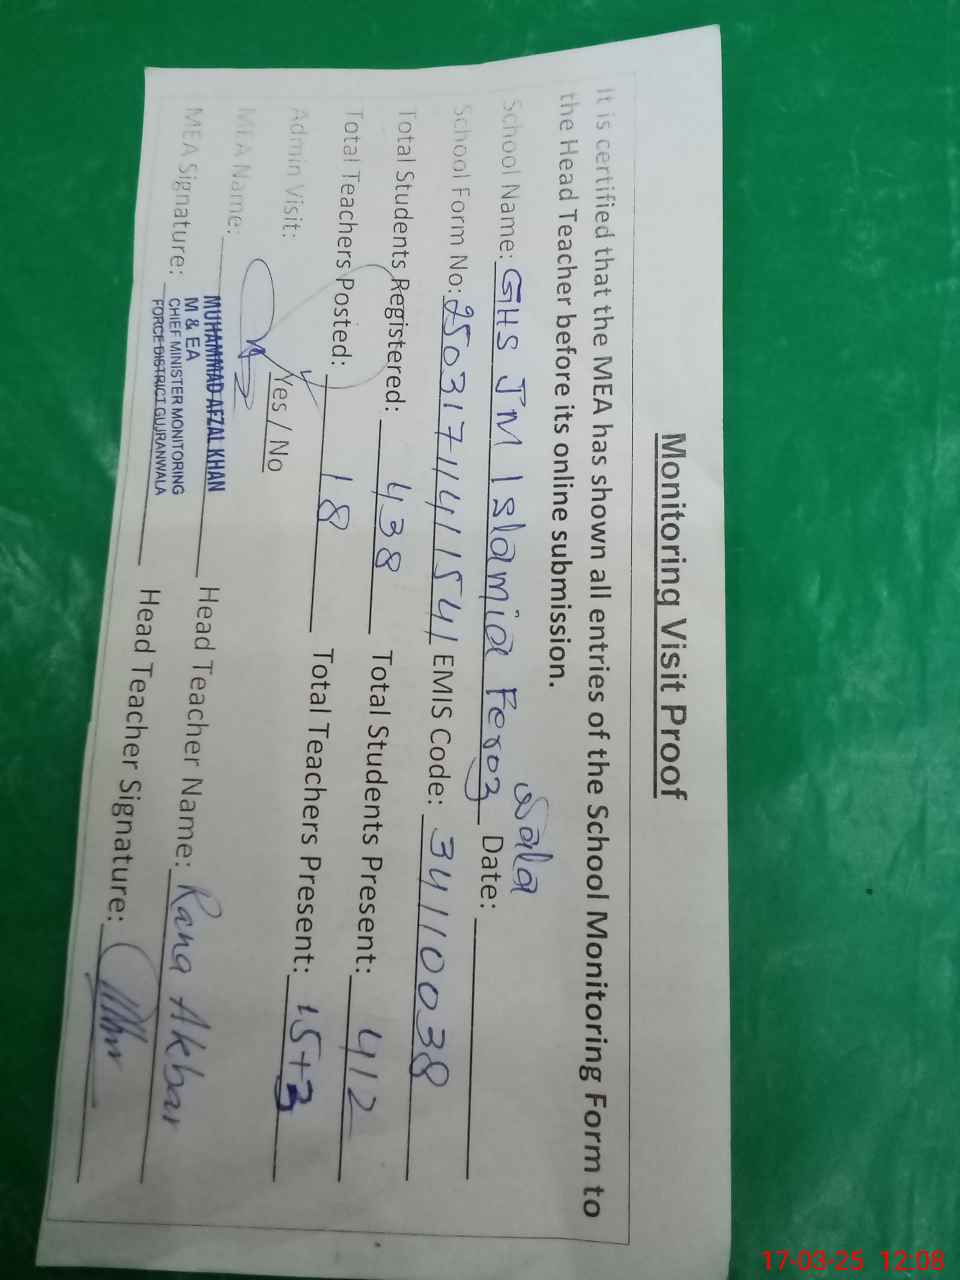 Monitoring Visit Proof
It is certified that the MEA has shown all entries of the School Monitoring Form to
the Head Teacher before its online submission.
School Name: GHS JM Islamia Feroz wala Date:
School Form No: 25031711411541 EMIS Code: 34110038
Total Students Registered: 438 Total Students Present: 412
Total Teachers Posted: 18 Total Teachers Present: 15+3
Admin Visit: Yes / No
MEA Name: MUHAMMAD AFZAL KHAN Head Teacher Name: Rana Akbar
M & EA
CHIEF MINISTER MONITORING
FORCE DISTRICT GUJRANWALA
MEA Signature: Head Teacher Signature:
17-03-25 12:08